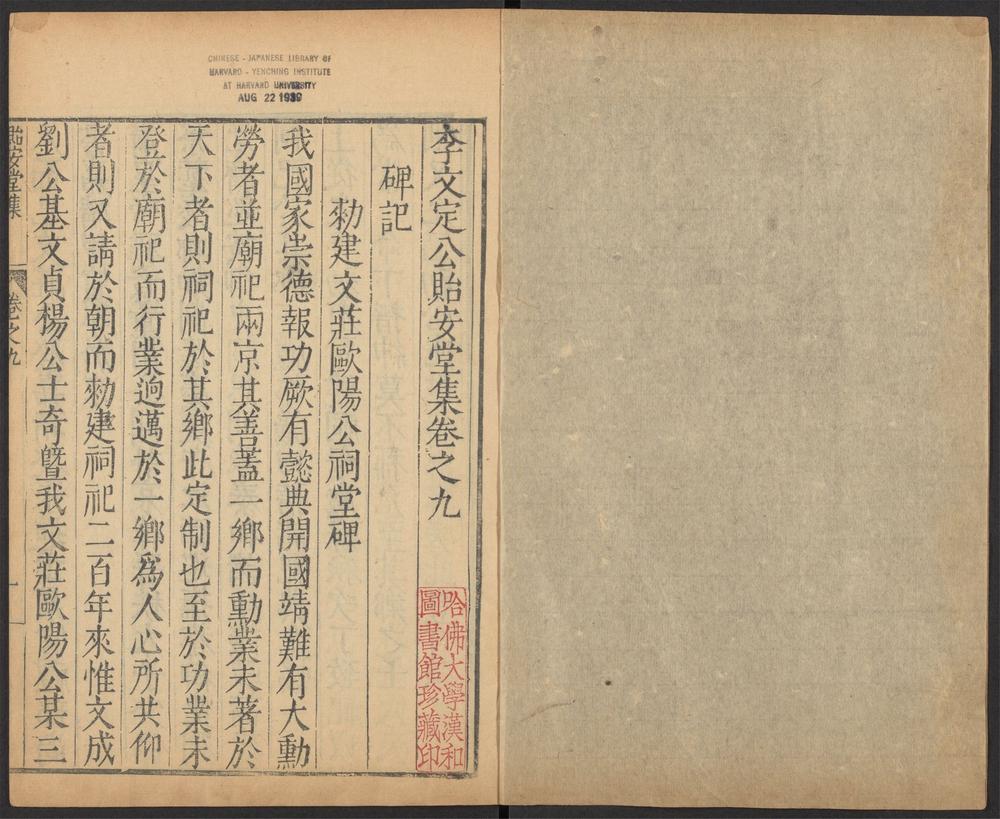 CHINESE - JAPANESE LIBRARY OF
HARVARD - YENCHING INSTITUTE
AT HARVARD UNIVERSITY
AUG 22 1939
李文定公貽安堂集卷之九
碑記
勑建文莊歐陽公祠堂碑
我國家崇德報功厥有懿典開國靖難有大勳
勞者並廟祀兩京其善蓋一鄉而勳業未著於
天下者則祠祀於其鄉此定制也至於功業未
登於廟祀而行業逈邁於一鄉爲人心所共仰
者則又請於朝而勑建祠祀二百年來惟文成
劉公基文貞楊公士奇曁我文莊歐陽公某三
貽安堂集
卷之九
一
哈佛大學漢和
圖書館珍藏印